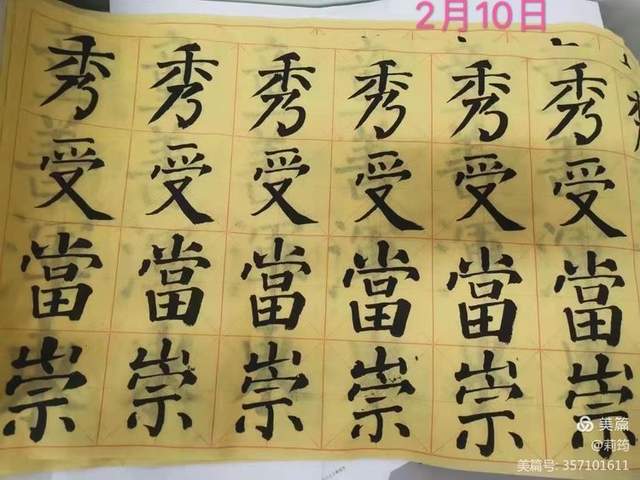 2月10日
秀秀秀秀秀秀
受受受受受受
當當當當當當
崇崇崇崇崇崇
美篇
@莉筠
美篇号: 357101611